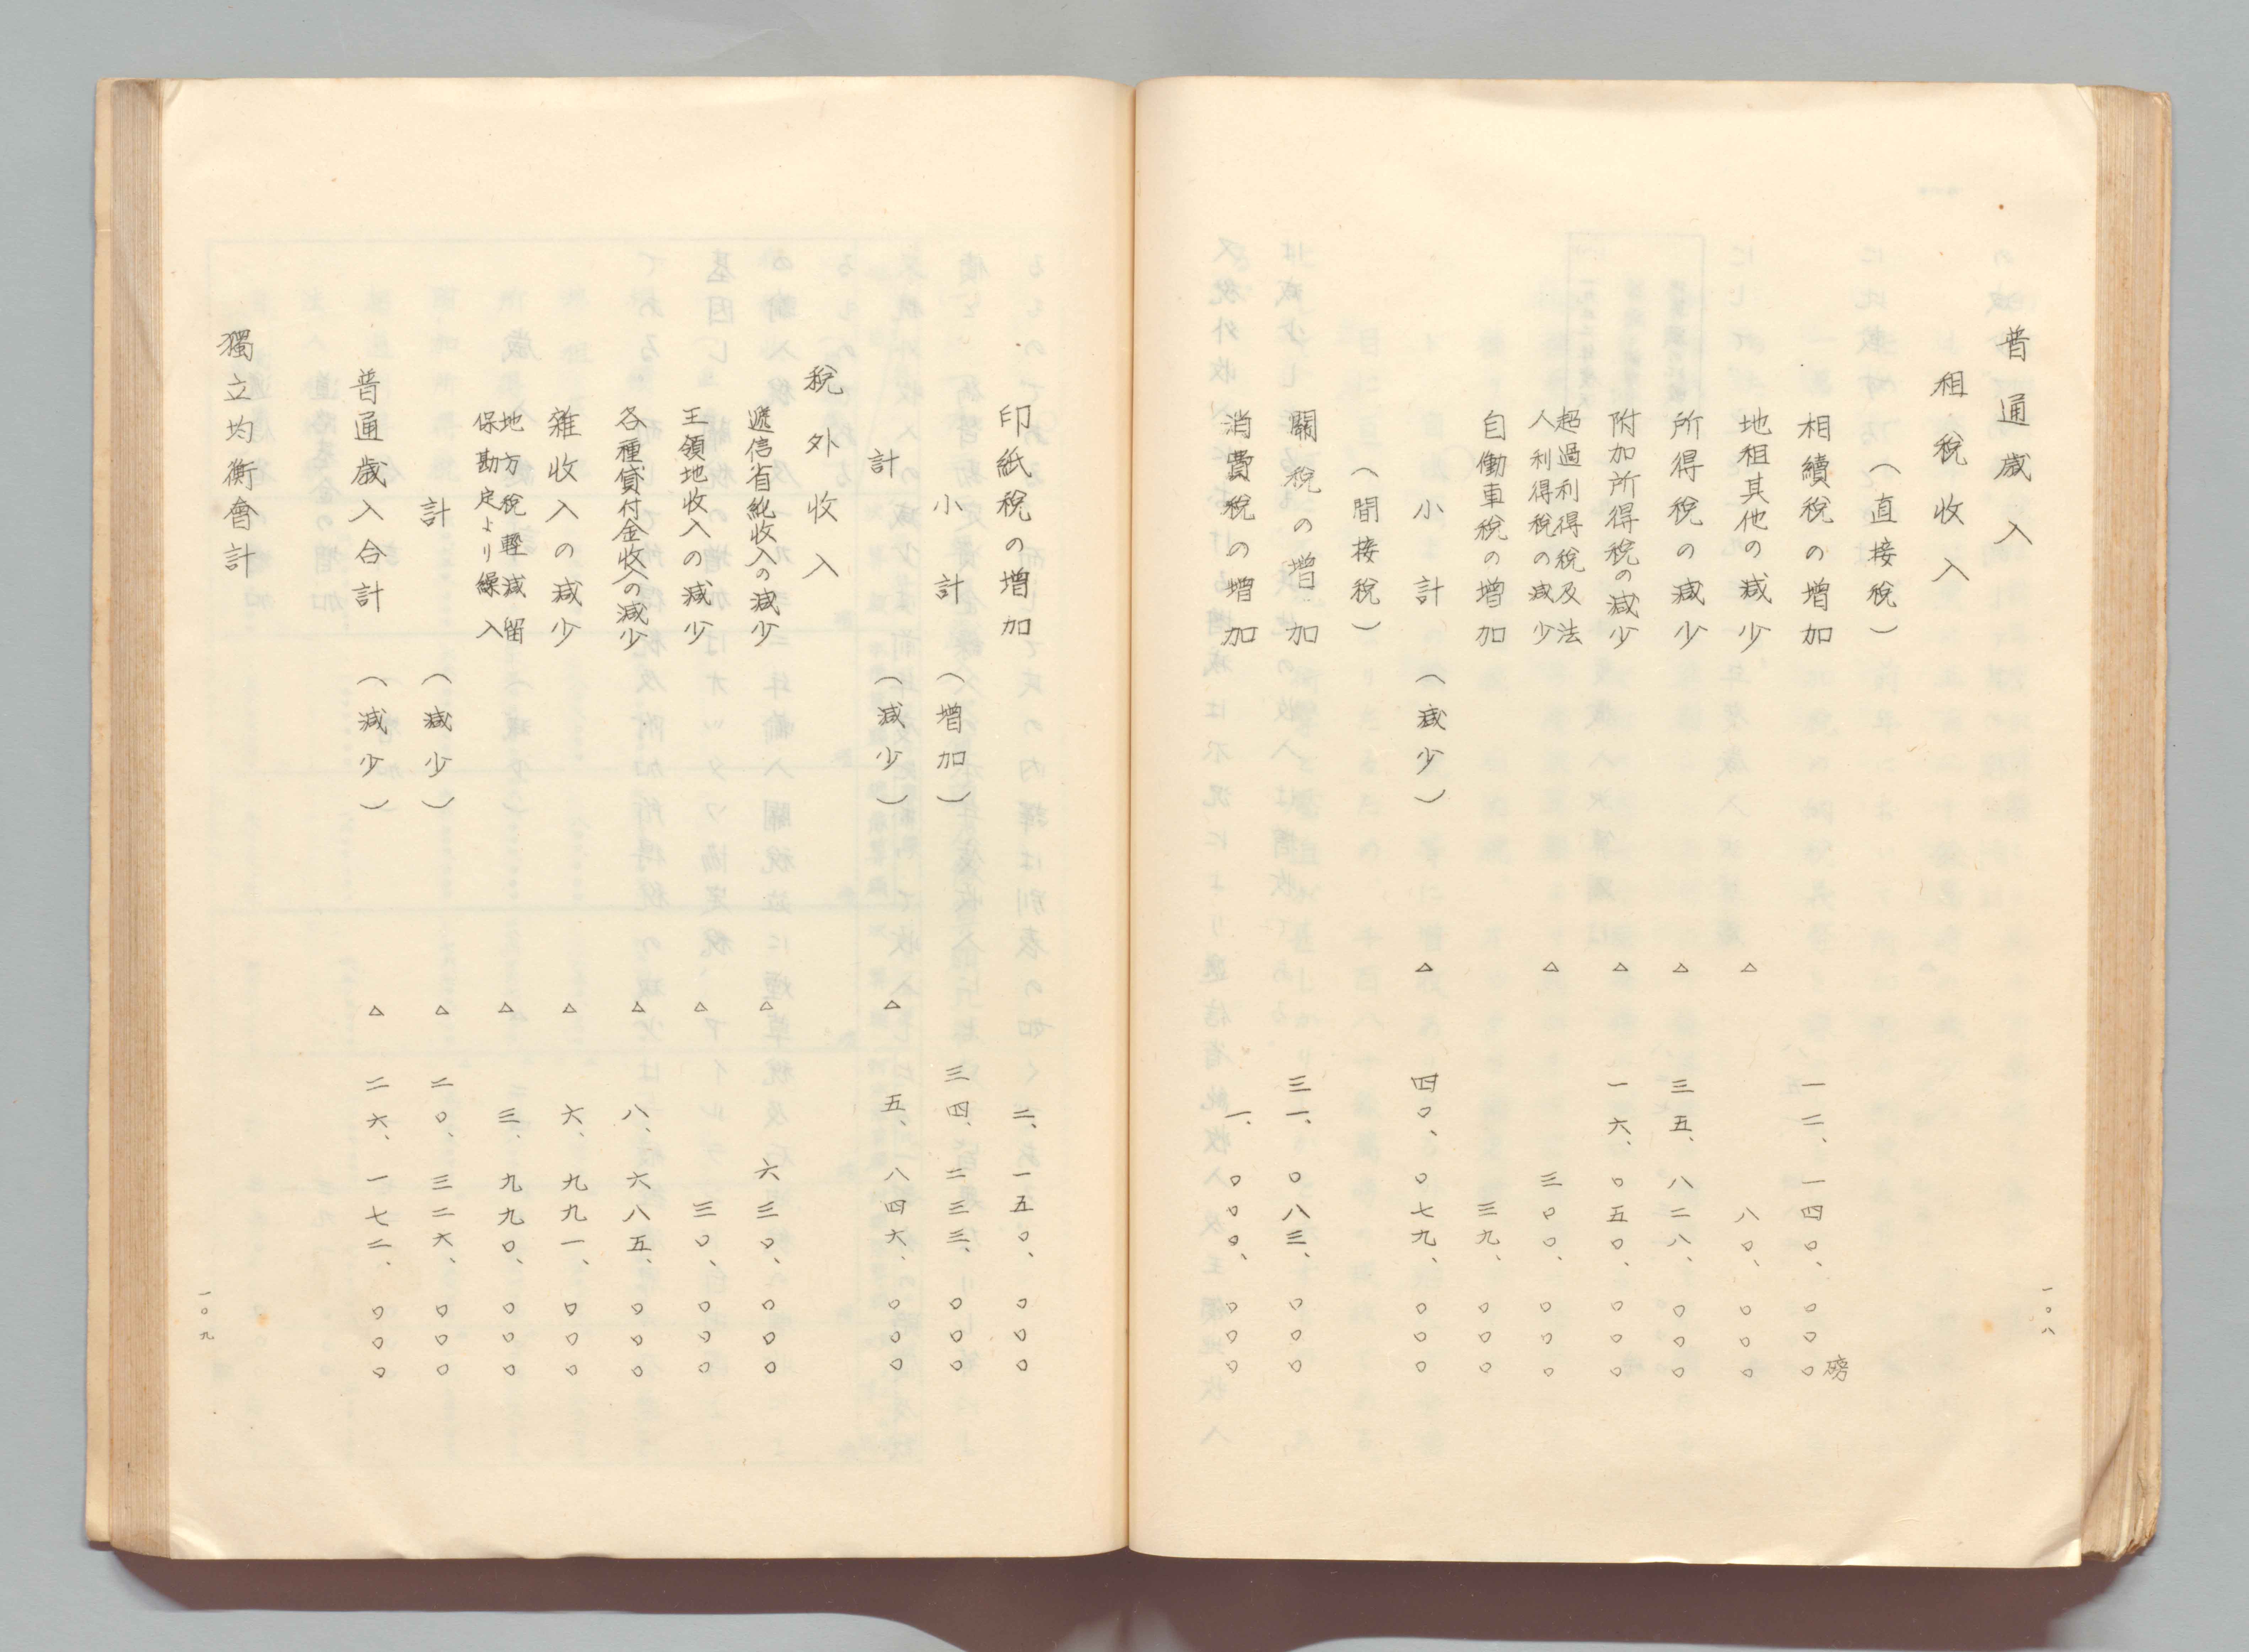 普通歳入
租税收入
(直接税)
相續税の増加 一二、一四〇、〇〇〇磅
地租其他の減少 △ 八〇、〇〇〇
所得税の減少 △ 三五、八二八、〇〇〇
附加所得税の減少 △ 一六、〇五〇、〇〇〇
超過利得税及法
人利得税の減少 △ 三〇〇、〇〇〇
自働車税の増加 三九、〇〇〇
小計(減少) △ 四〇、〇七九、〇〇〇
(間接税)
關税の増加 三一、〇八三、〇〇〇
消費税の増加 一、〇〇〇、〇〇〇
一〇八
印紙税の増加 二、一五〇、〇〇〇
小計(増加) 三四、二三三、〇〇〇
計(減少) △ 五、八四六、〇〇〇
税外收入
遞信省純收入の減少 △ 六三〇、〇〇〇
王領地收入の減少 △ 三〇、〇〇〇
各種貸付金收入の減少 △ 八、六八五、〇〇〇
雜收入の減少 △ 六、九九一、〇〇〇
地方税輕減留
保勘定より繰入 △ 三、九九〇、〇〇〇
計(減少) △ 二〇、三二六、〇〇〇
普通歳入合計(減少) △ 二六、一七二、〇〇〇
獨立均衡會計
一〇九